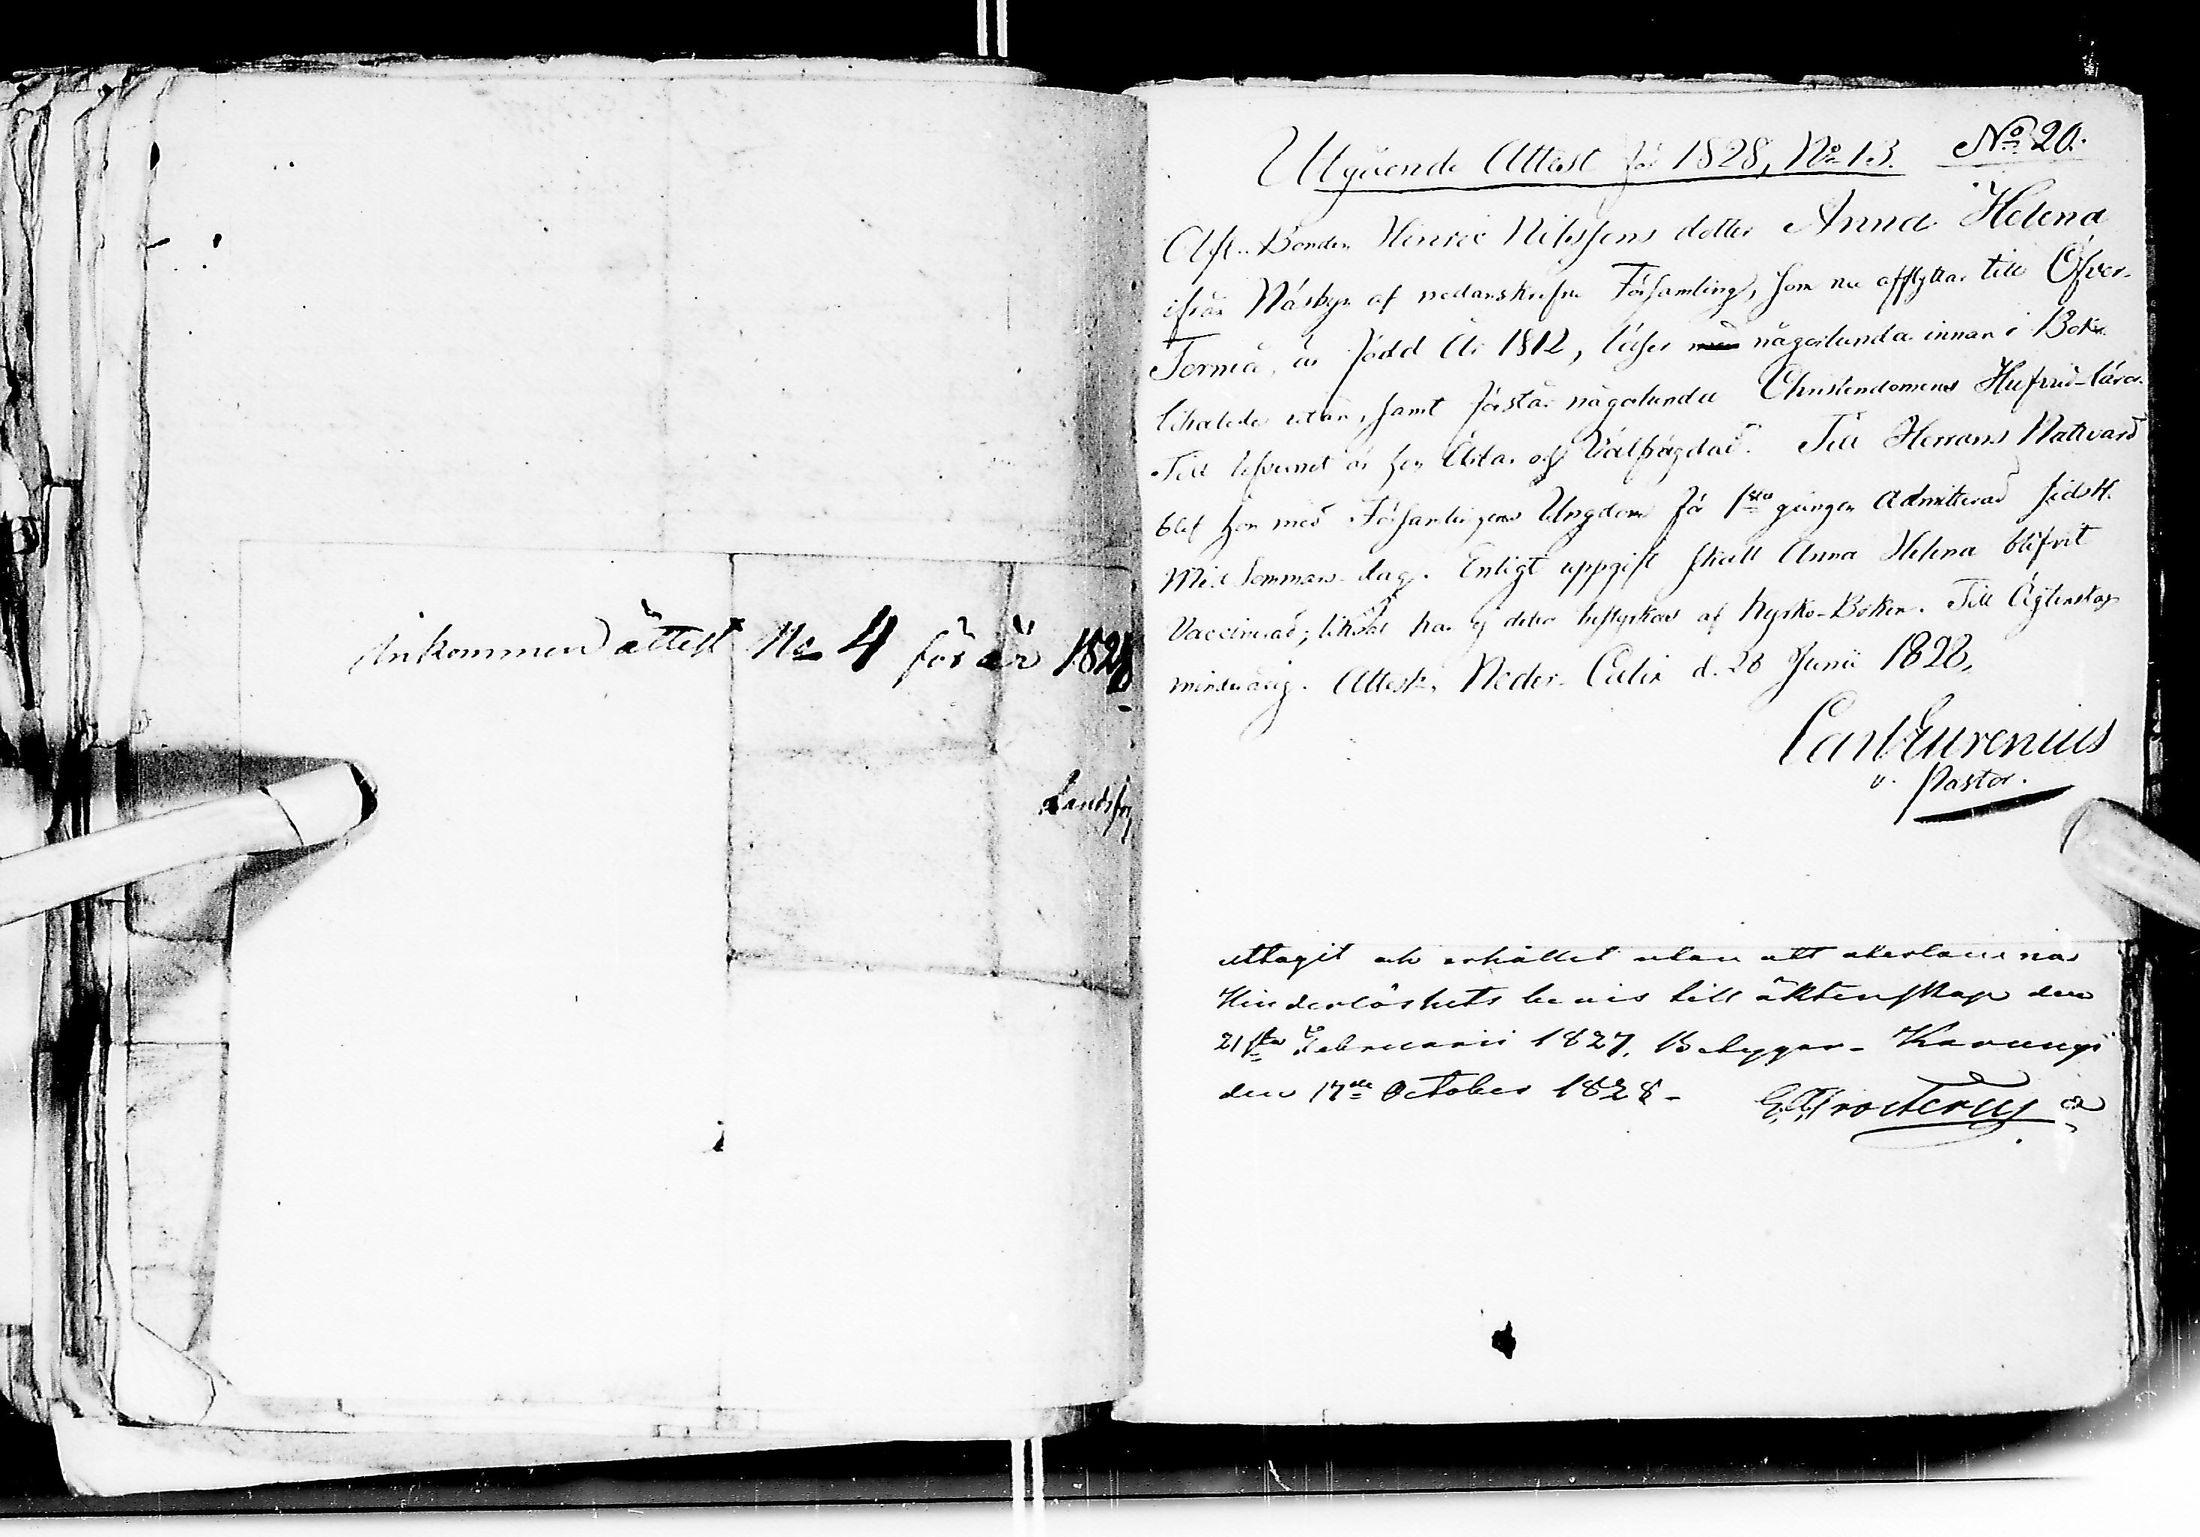 Inkommen attest No 4 för år 1828
Landsfog
Utgående Attest för 1828, No 13. No 20.
Aflt. Bonden Henric Nilssons dotter Anna Helena
ifrån Näsbyn af nedanskrefne Församling, som nu afflyttar till Öfver-
Torneå, är född År 1812, läser någorlunda innan i Bok
likaledes utan, samt förstår någorlunda Christendomens Hufvud-läror.
Till lefvernet är hon Ärlar och Välfrägdad. Till Herrans Nattvard
blef hon med Församlingens Ungdom för 1sta gången admitterad sidstl.
Mid Sommars-dag. Enligt uppgift skall Anna Helena blifvit
Vaccinerad; likväl kan ej detta bestyrkas af Kyrko-Boken. Till Ägtenskap
minderårig. Attest. Neder-Calix d. 28 Junii 1828.
Carl Eurenius
v. Pastor.
uttagit och erhållet utan att återlämnas
Hinderlöshets bevis till äktenskap den
21sta Februarii 1827, Betygar- Karungi
den 17de October 1828-